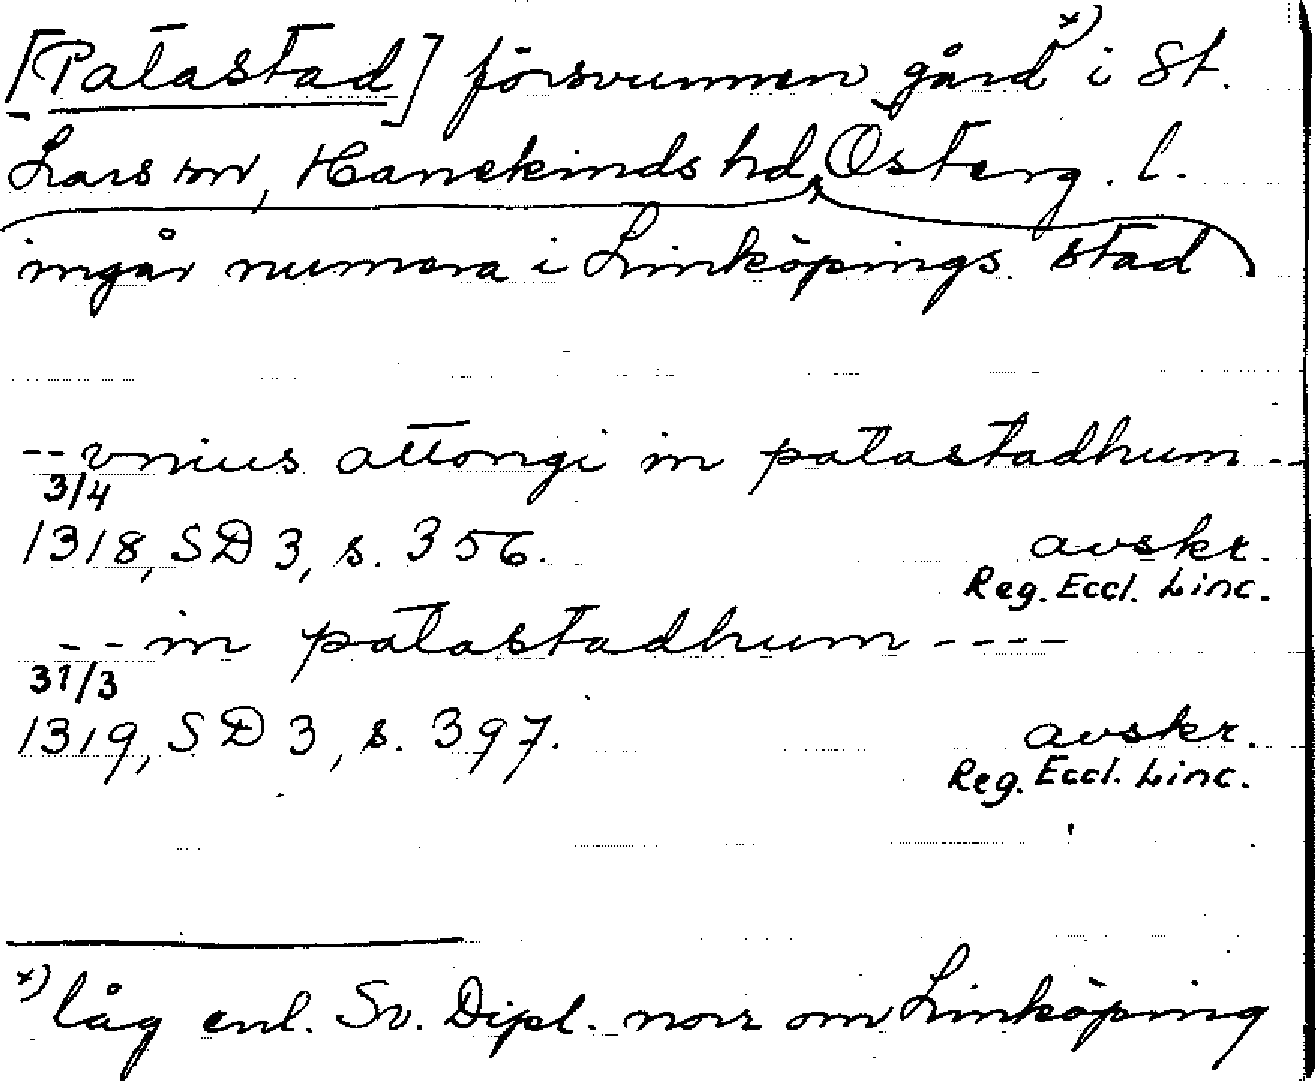 [Patastad] försvunnen gård x) i St.
Lars sn, Hanekinds hd, Österg. l.
ingår numera i Linköpings stad
-- vnius attongi in patastadhum --
3/4
1318, SD 3, s. 356. avskr.
Reg. Eccl. Linc.
-- in patastadhum ----
31/3
1319, SD 3, s. 397. avskr.
Reg. Eccl. Linc.
x) låg enl. Sv. Dipl. norr om Linköping